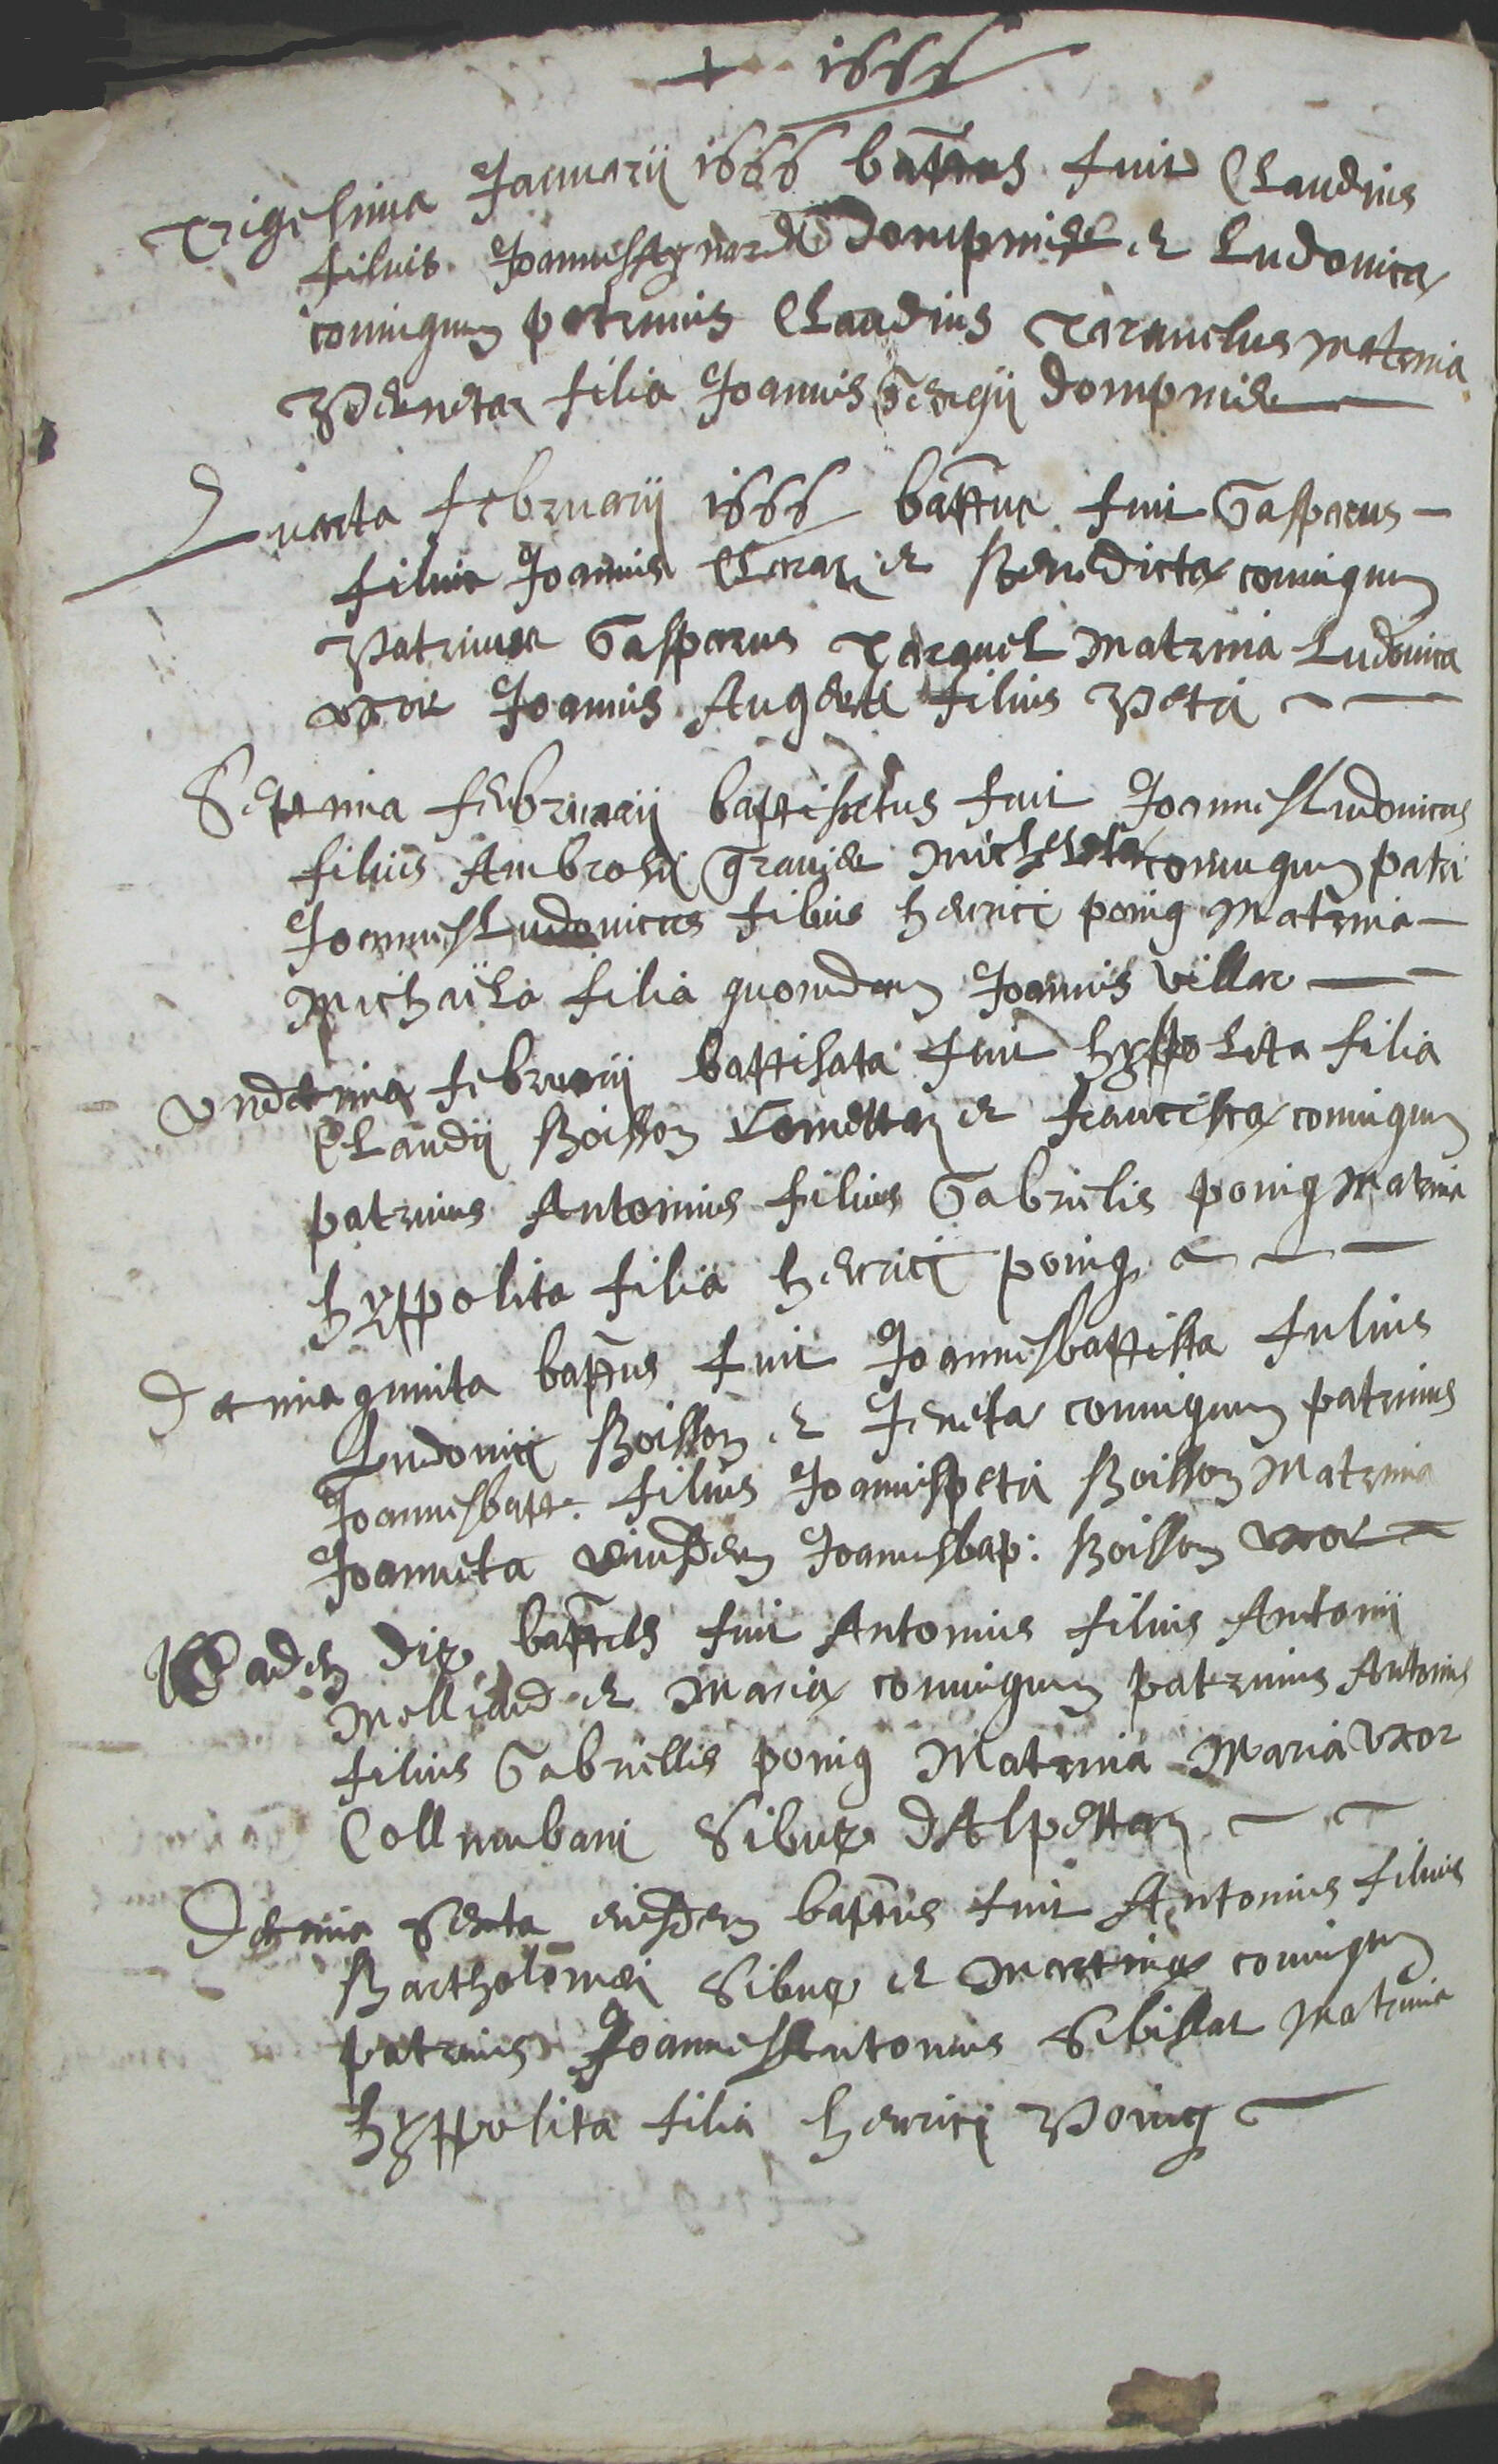 + 1666
Trigesima Januarii 1666 bapt̄us fuit Claudius
filius Joannis Dompnie et Ludovica
coniugum patrinus Claudius Taranclus Matrina
Peroneta filia Joannis Georgii Dompnie
Quarta februarii 1666 bapttus fuit Gasparus
filius Joannis Claraz et Benedictæ coniugum
Patrinus Gasparus Matrina Ludovica
uxor Joannis Augerti filius Petri
Septima februarii baptisatus fuit JoannesLudovicus
filius Ambrosii Gravier Micheletæ coniugum patri
JoannesLudovicus filius henrici ponig Matrina
Michaela filia quondam Joannis Villar
Undecima februarii battisata fuit hyppolita filia
Claudii Boisson et franciscæ coniugum
patrinus Antonius filius Gabrielis ponig Matrina
hyppolita filia henrici ponig
Decima quinta bapt̄us fuit Joannesbattista fulius
Ludovici Boisson et Jenetæ coniugum patrinus
Joannesbatt. filius Joannispetri Boisson Matrina
Joanneta eiusdem Joannesbap: Boisson uxor
Eadem die bapt̄us fuit Antonius filius Antonii
Mollied et Mariæ coniugum patrinus Antonius
filius Gabriellis ponig Matrina Maria uxor
Collumbani Sibue dAlpettaz
Decima Sexta eiusdem bapt̄us fuit Antonius filius
Bartholomei Sibue et Martinæ coniugum
patrinus JoannesAntonius Sibillat Matrina
hyppolita filia henrici Ponig